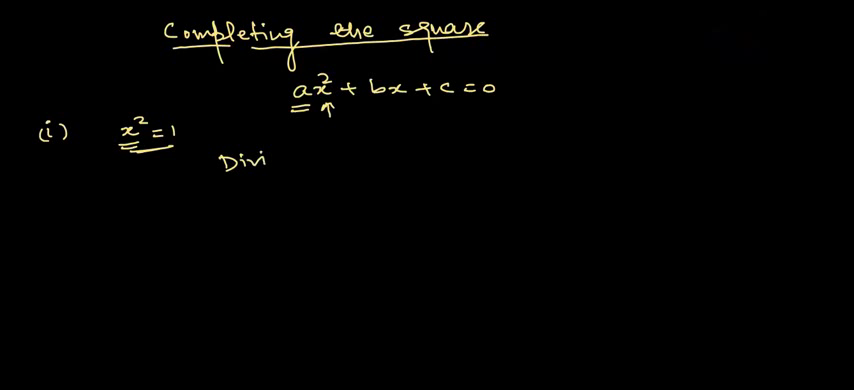 Completing the square
ax² + bx + c = 0
(i) x² = 1
Divi